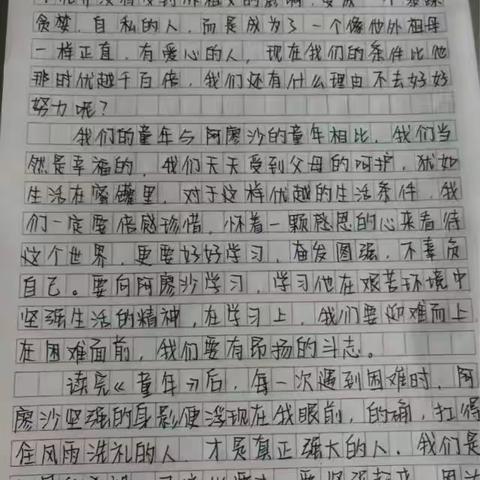 贪婪、自私的人，而是成为了一个像他外祖母
一样正直，有爱心的人，现在我们的条件比他
那时优越千百倍，我们还有什么理由不去好好
努力呢？
我们的童年与阿廖沙的童年相比，我们当
然是幸福的，我们天天受到父母的呵护，犹如
生活在蜜罐里，对于这样优越的生活条件，我
们一定要倍感珍惜，怀着一颗感恩的心来看待
这个世界，更要好好学习，奋发图强，不辜负
自己。要向阿廖沙学习，学习他在艰苦环境中
坚强生活的精神，在学习上，我们要迎难而上，
在困难面前，我们要有昂扬的斗志。
读完《童年》后，每一次遇到困难时，阿
廖沙坚强的身影便浮现在我眼前，的确，扛得
住风雨洗礼的人，才是真正强大的人，我们是